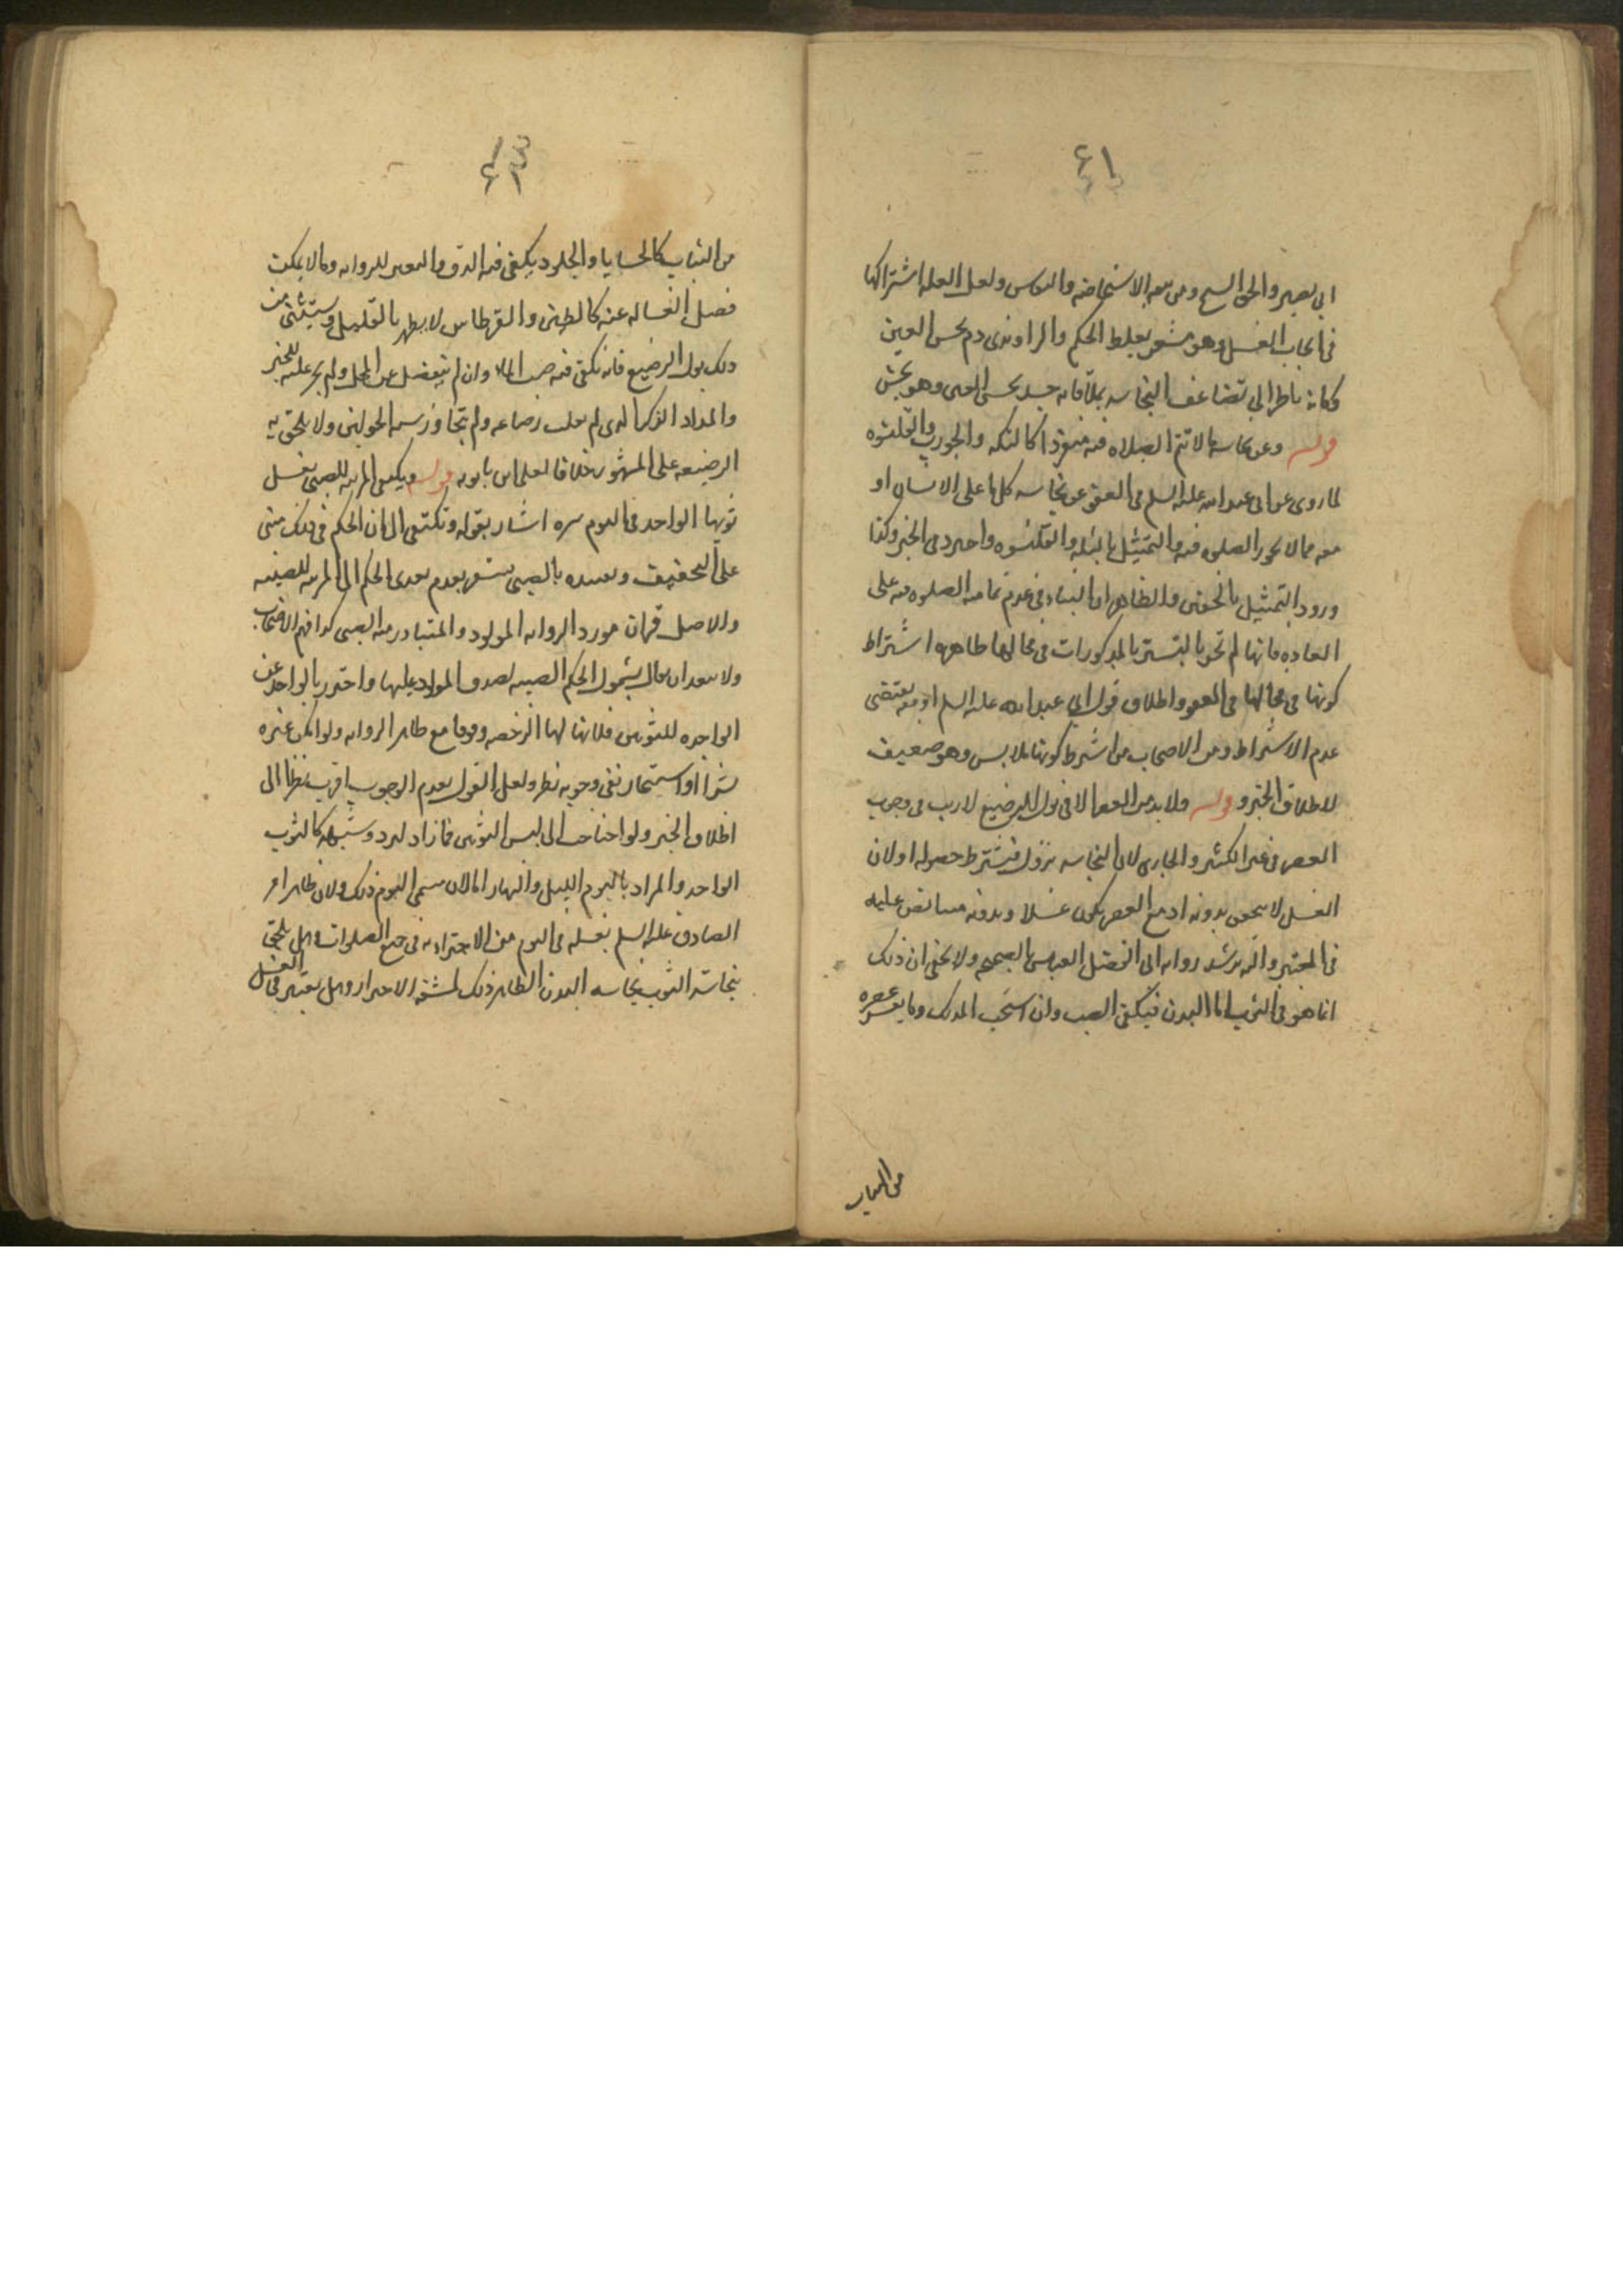 ٤١
ابي بصير والحق الشيخ ومن تبعه الاستحاضه والنفاس ولعل العله اشتراكها
في ايجاب الغسل وهو مشعر بغلظ الحكم والراوندي دم نجس العين
وكانه ناظر الى تضاعف النجاسه بملاقاته جسد نجس العين وهو بحث
قوله وعن نجاسه ما لا تتم الصلاه فيه منفردا كالتكه والجورب والقلنسوه
لما روى عن ابي عبد الله عليه السلم في العفو عن نجاسه كل ما على الانسان او
معه مما لا تجوز الصلوه فيه والتمثيل بالتكه والقلنسوه واحد في الخبر وكذا
ورود التمثيل بالخفين والظاهر ان البناء في عدم تماميه الصلوه فيه على
العاده فانها لم تجر بالتستر بالمذكورات في محالها ظاهره اشتراط
كونها في محالها في العفو واطلاق قول ابي عبد الله عليه السلم او معه يقتضي
عدم الاشتراط ومن الاصحاب من اشترط كونها ملابس وهو ضعيف
لاطلاق الخبر و قوله ولا بد من العصر الا في بول الرضيع لا ريب في وجوب
العصر في غير الكثير والجاري لان النجاسه تزول فيشترط حصوله او لان
الغسل لا يتحقق بدونه اذ مع العصر يكون غسلا وبدونه صبا نص عليه
في المعتبر وانه يرشد روايه ابي الفضل العباس الصحيحه ولا يخفى ان ذلك
انما هو في الثوب اما البدن فيكفي الصب وان استحب الدلك وما يعسر عصره
من الثياب
من الثياب كالحشايا والجلود يكفي فيه الدق والتغمير للروايه وما لا يمكن
فصل الغساله عنه كالطين والقرطاس لا يطهر بالقليل ويستثنى من
ذلك بول الرضيع فانه يكفي فيه صب الماء وان لم ينفصل عن المحل ولم يجر عليه للخبر
والمراد الذكر الذي لم يغلب رضاعه ولم يتجاوز سن الحولين ولا يلحق به
الرضيعه على المشهور خلافا لعلي بن بابويه قوله ويكفي المربيه للصبي غسل
ثوبها الواحد في اليوم مره اشار بقوله وتكتفي الى ان الحكم في ذلك مبني
على التخفيف وتقييده بالصبي يشعر بعدم تعدي الحكم الى المربيه للصبيه
والاصل فيه ان مورد الروايه المولود والمتبادر منه الصبي كذا فهم الاصحاب
ولا يبعد ان يقال بشمول الحكم الصبيه لصدق المولود عليها واحترز بالواحد عن
الواجده للثوبين فلا تنالها الرخصه وقوفا مع ظاهر الروايه ولو امكن غيره
شراء او استيجار ففي وجوبه نظر ولعل القول بعدم الوجوب اقرب نظرا الى
اطلاق الخبر ولو احتاجت الى لبس الثوبين فما زاد لبرد وشبهه كالثوب
الواحد والمراد باليوم الليل والنهار اما لان مسمى اليوم ذلك ولان ظاهر امر
الصادق عليه السلم بغسله في اليوم مره الاجتزاء به في جميع الصلوات وهل يلحق
نجاسة الثوب نجاسه البدن الظاهر ذلك لمشقه الاحتراز وهل يعتبر في الغسل